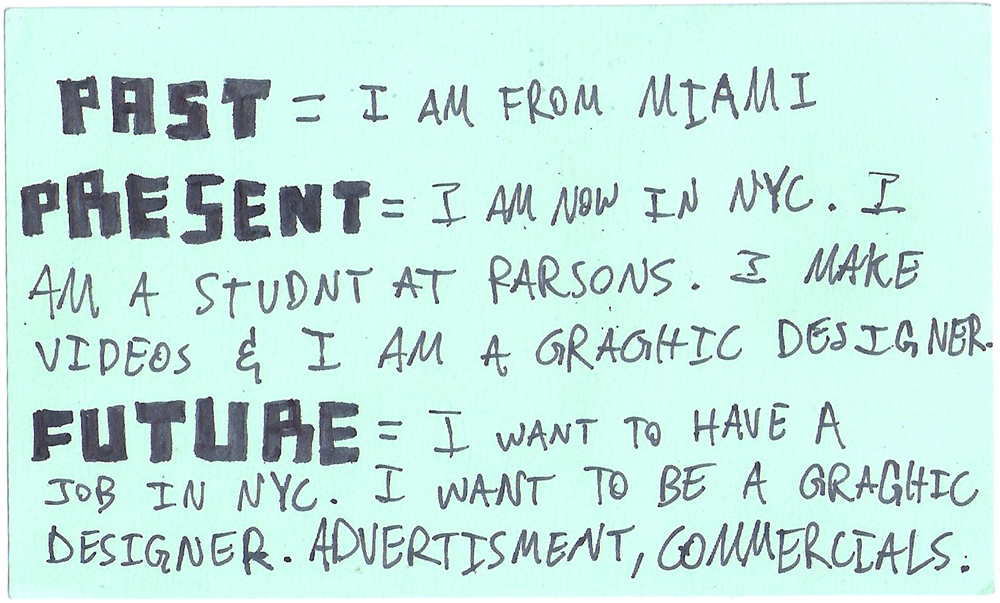 PAST = I AM FROM MIAMI
PRESENT = I AM NOW IN NYC. I
AM A STUDNT AT PARSONS. I MAKE
VIDEOS & I AM A GRAGHIC DESIGNER.
FUTURE = I WANT TO HAVE A
JOB IN NYC. I WANT TO BE A GRAGHIC
DESIGNER. ADVERTISMENT, COMMERCIALS.